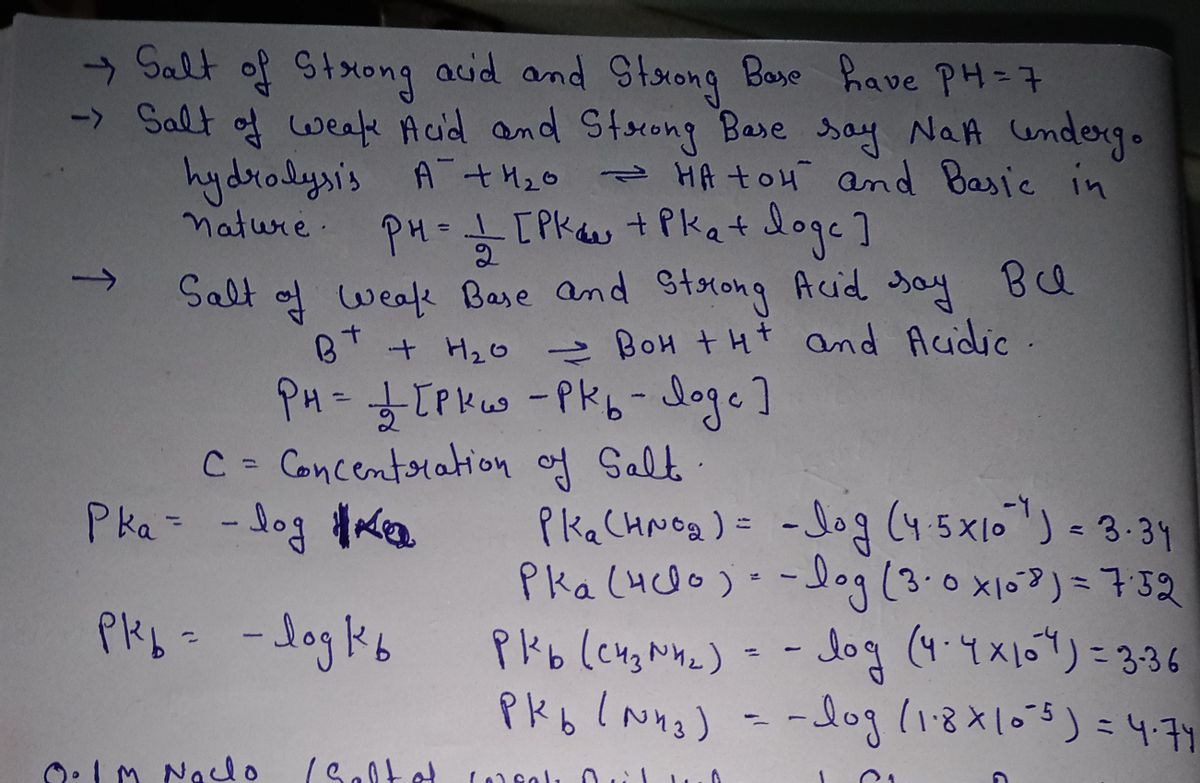 → Salt of Strong acid and Strong Base have PH=7
→ Salt of weak Acid and Strong Base say NaA undergo
hydrolysis A⁻ + H₂O ⇌ HA + OH⁻ and Basic in
nature. PH = 1/2 [PKw + PKa + logc]
→ Salt of weak Base and Strong Acid say BCl
B⁺ + H₂O ⇌ BOH + H⁺ and Acidic.
PH = 1/2 [PKw - PKb - logc]
C = Concentration of Salt.
PKa = - log Ka PKa (HNO2) = - log (4.5×10⁻⁴) = 3.34
PKa (HClO) = - log (3.0×10⁻⁸) = 7.52
PKb = - log Kb PKb (CH₃NH₂) = - log (4.4×10⁻⁴) = 3.36
PKb (NH₃) = - log (1.8×10⁻⁵) = 4.74
0.1M NaClO (Salt of